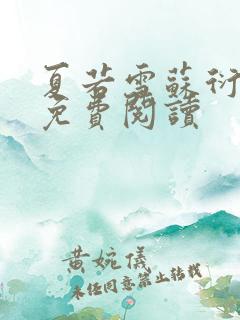 夏若雪蘇衍
免費閱讀
黄婉儀
未经同意禁止转载